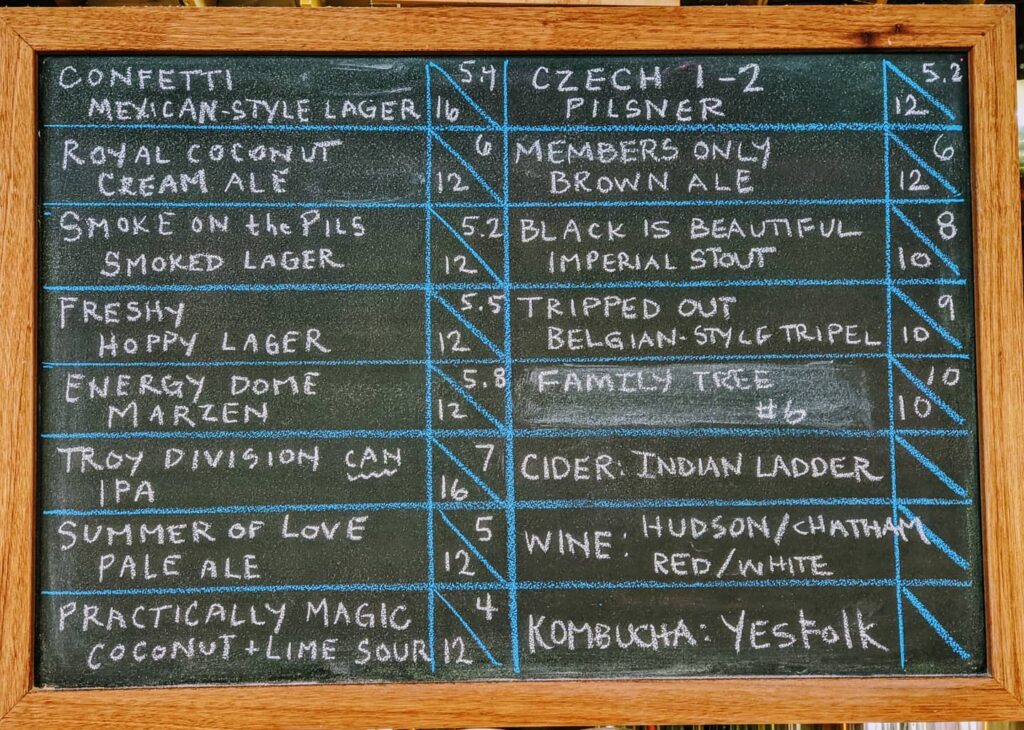 CONFETTI 5.4
MEXICAN-STYLE LAGER 16
ROYAL COCONUT 6
CREAM ALE 12
SMOKE ON the PILS 5.2
SMOKED LAGER 12
FRESHY 5.5
HOPPY LAGER 12
ENERGY DOME 5.8
MARZEN 12
TROY DIVISION CAN 7
IPA 16
SUMMER OF LOVE 5
PALE ALE 12
PRACTICALLY MAGIC 4
COCONUT + LIME SOUR 12
CZECH 1-2 5.2
PILSNER 12
MEMBERS ONLY 6
BROWN ALE 12
BLACK IS BEAUTIFUL 8
IMPERIAL STOUT 10
TRIPPED OUT 9
BELGIAN-STYLE TRIPEL 10
FAMILY TREE 10
#6 10
CIDER: INDIAN LADDER
WINE: HUDSON/CHATHAM
RED/WHITE
KOMBUCHA: YESFOlK